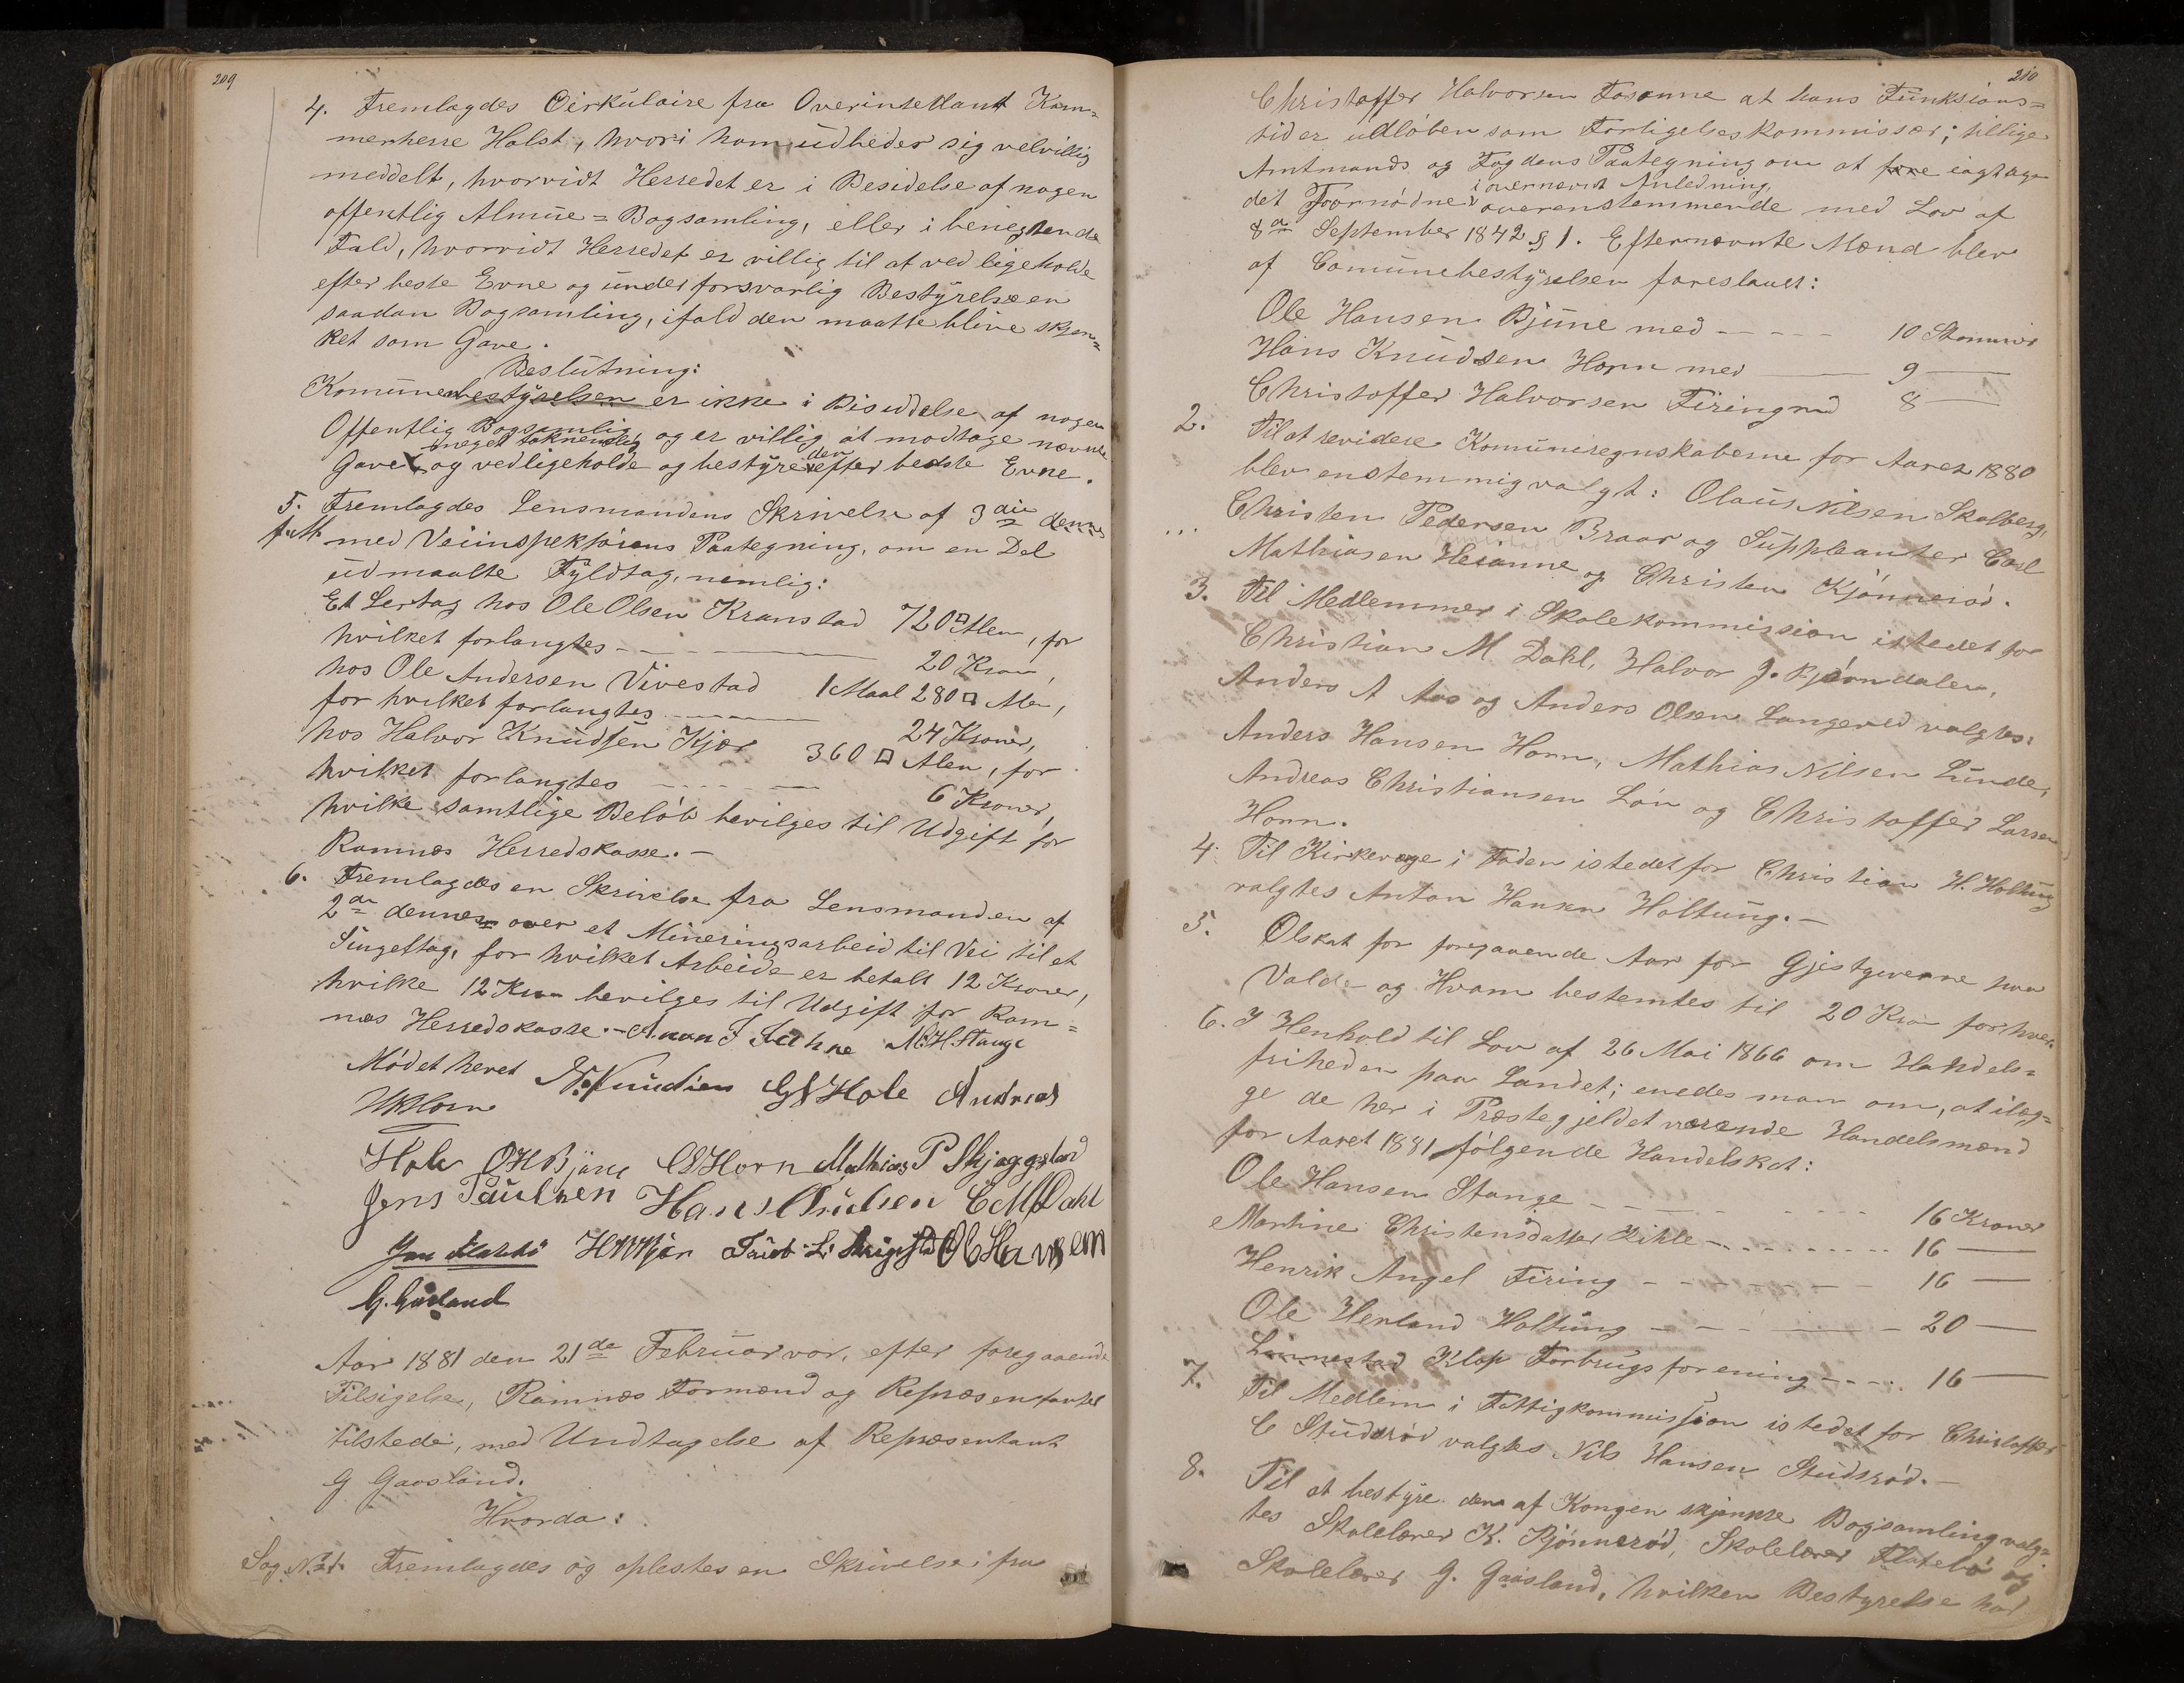 209
4. Fremlagdes Cirkulaire fra Overintendant Kam-
merherre Holst, hvori han udbeder sig velvillig
meddelt, hvorvidt Herredet er i Besidelse af nogen
offentlig Almue=Bogsamling, eller i benegtende
Fald, hvorvidt Herredet er villig til at vedligeholde
efter beste Evne og under forsvarlig Bestyrelse en
saadan Bogsamling, ifald den maatte blive skjen=
ket som Gave.
Beslutning:
Komunebestyrelsen er ikke i Besiddelse af nogen
Offentlig Bogsamlig og er villig at modtage nævnte
meget taknemlig den
Gave og vedligeholde og bestyre efter bedste Evne.
5. Fremlagdes Lensmandens Skrivelse af 3die dennes
med Veiinspektørens Paategning, om en Del
udmaalte Fyldtag, nemlig:
Et Lertag hos Ole Olsen Kranstad 720 □ Alen, for
hvilket forlangtes 20 Kroner,
hos Ole Andersen Vivestad 1 Maal 280 □ Alen,
for hvilket forlangtes 24 Kroner,
hos Halvor Knudsen Kjær 360 □ Alen, for
hvilket forlangtes 6 Kroner,
hvilke samtlige Beløb bevilges til Udgift for
Ramnæs Herredskasse.-
6. Fremlagdes en Skrivelse fra Lensmanden af
2den dennes over et Mineringsarbeid til Vei til et
Singeltag, for hvilket Arbeide er betalt 12 Kroner,
hvilke 12 Kroner bevilges til Udgift for Ram=
næs Herredskasse.-
M. H. Stange
Mødet hevet
Knudsen G Hole Andreas
HKHorn
Hole OHBjune Horn Mathias P Skjeggstad
Jens Paulsen Hans Knudsen C M Dahl
O Hansen
G. Gaasland
Aar 1881 den 21de Februar var, efter foregaaende
Tilsigelse, Ramnæs Formænd og Repræsentanter
tilstede, med Undtagelse af Repræsentant
G Gaasland.
Hvorda:
Sag No 1. Fremlagdes og oplestes en Skrivelse fra
210
Christoffer Halvorsen Fosanne at hans Funksions=
tid er udløben som Forligelseskommissær; tillige
Amtmands og Fogdens Paategning om at iagttage
i overnævnt Anledning,
det Fornødne overenstemmende med Lov af
8de September 1842 § 1. Efternævnte Mænd blev
af Comunebestyrelsen foreslaaet:
Ole Hansen Bjune med - - - - 10 Stemmer
Hans Knudsen Horn med — 9 —
Christoffer Halvorsen Firing med 8 —
2. Til at revidere Komuneregnskaberne for Aaret 1880
blev enstemmig valgt: Olaus Nilsen Skalberg,
Christen Pedersen Braar og Suppleanter Carl
Mathiasen Hesanne og Christen Kjønnerød.
3. Til Medlemmer i Skolekommission istedet for
Christian M. Dahl, Halvor J. Bjørndalen,
Anders A Aas og Anders Olsen Langeved valgtes:
Anders Hansen Horn, Mathias Nilsen Lunde,
Andreas Christiansen Løn og Christoffer Larsen
Horn.
4. Til Kirkeverge i Foden istedet for Christian H. Holtung
valgtes Anton Hansen Holtung.-
5. Ølskat for foregaaende Aar for Gjestgiverne paa
Valde og Hvam bestemtes til 20 Kroner for hver.
6. I Henhold til Lov af 26 Mai 1866 om Handels=
friheden paa Landet; enedes man om, at ilæg=
ge de her i Præstegjeldet værende Handelsmænd
for Aaret 1881 følgende Handelskat:
Ole Hansen Stange - - - - 16 Kroner
Martine Christensdatter Kikle - - - - 16 —
Henrik Angel Firing - - - - 16 —
Ole Herland Holtung - - - - 20 —
Linnestad Klop Forbrugsforening - - - . 16 —
7. Til Medlem i Fattigkommission istedet for Christoffer
C Studsrød valgtes Nils Hansen Studsrød.-
8. Til at bestyre den af Kongen skjenkte Bogsamling valg=
tes Skolelærer K. Kjønnerød, Skolelærer Flatebø og
Skolelærer G. Gaasland, hvilken Bestyrelse har